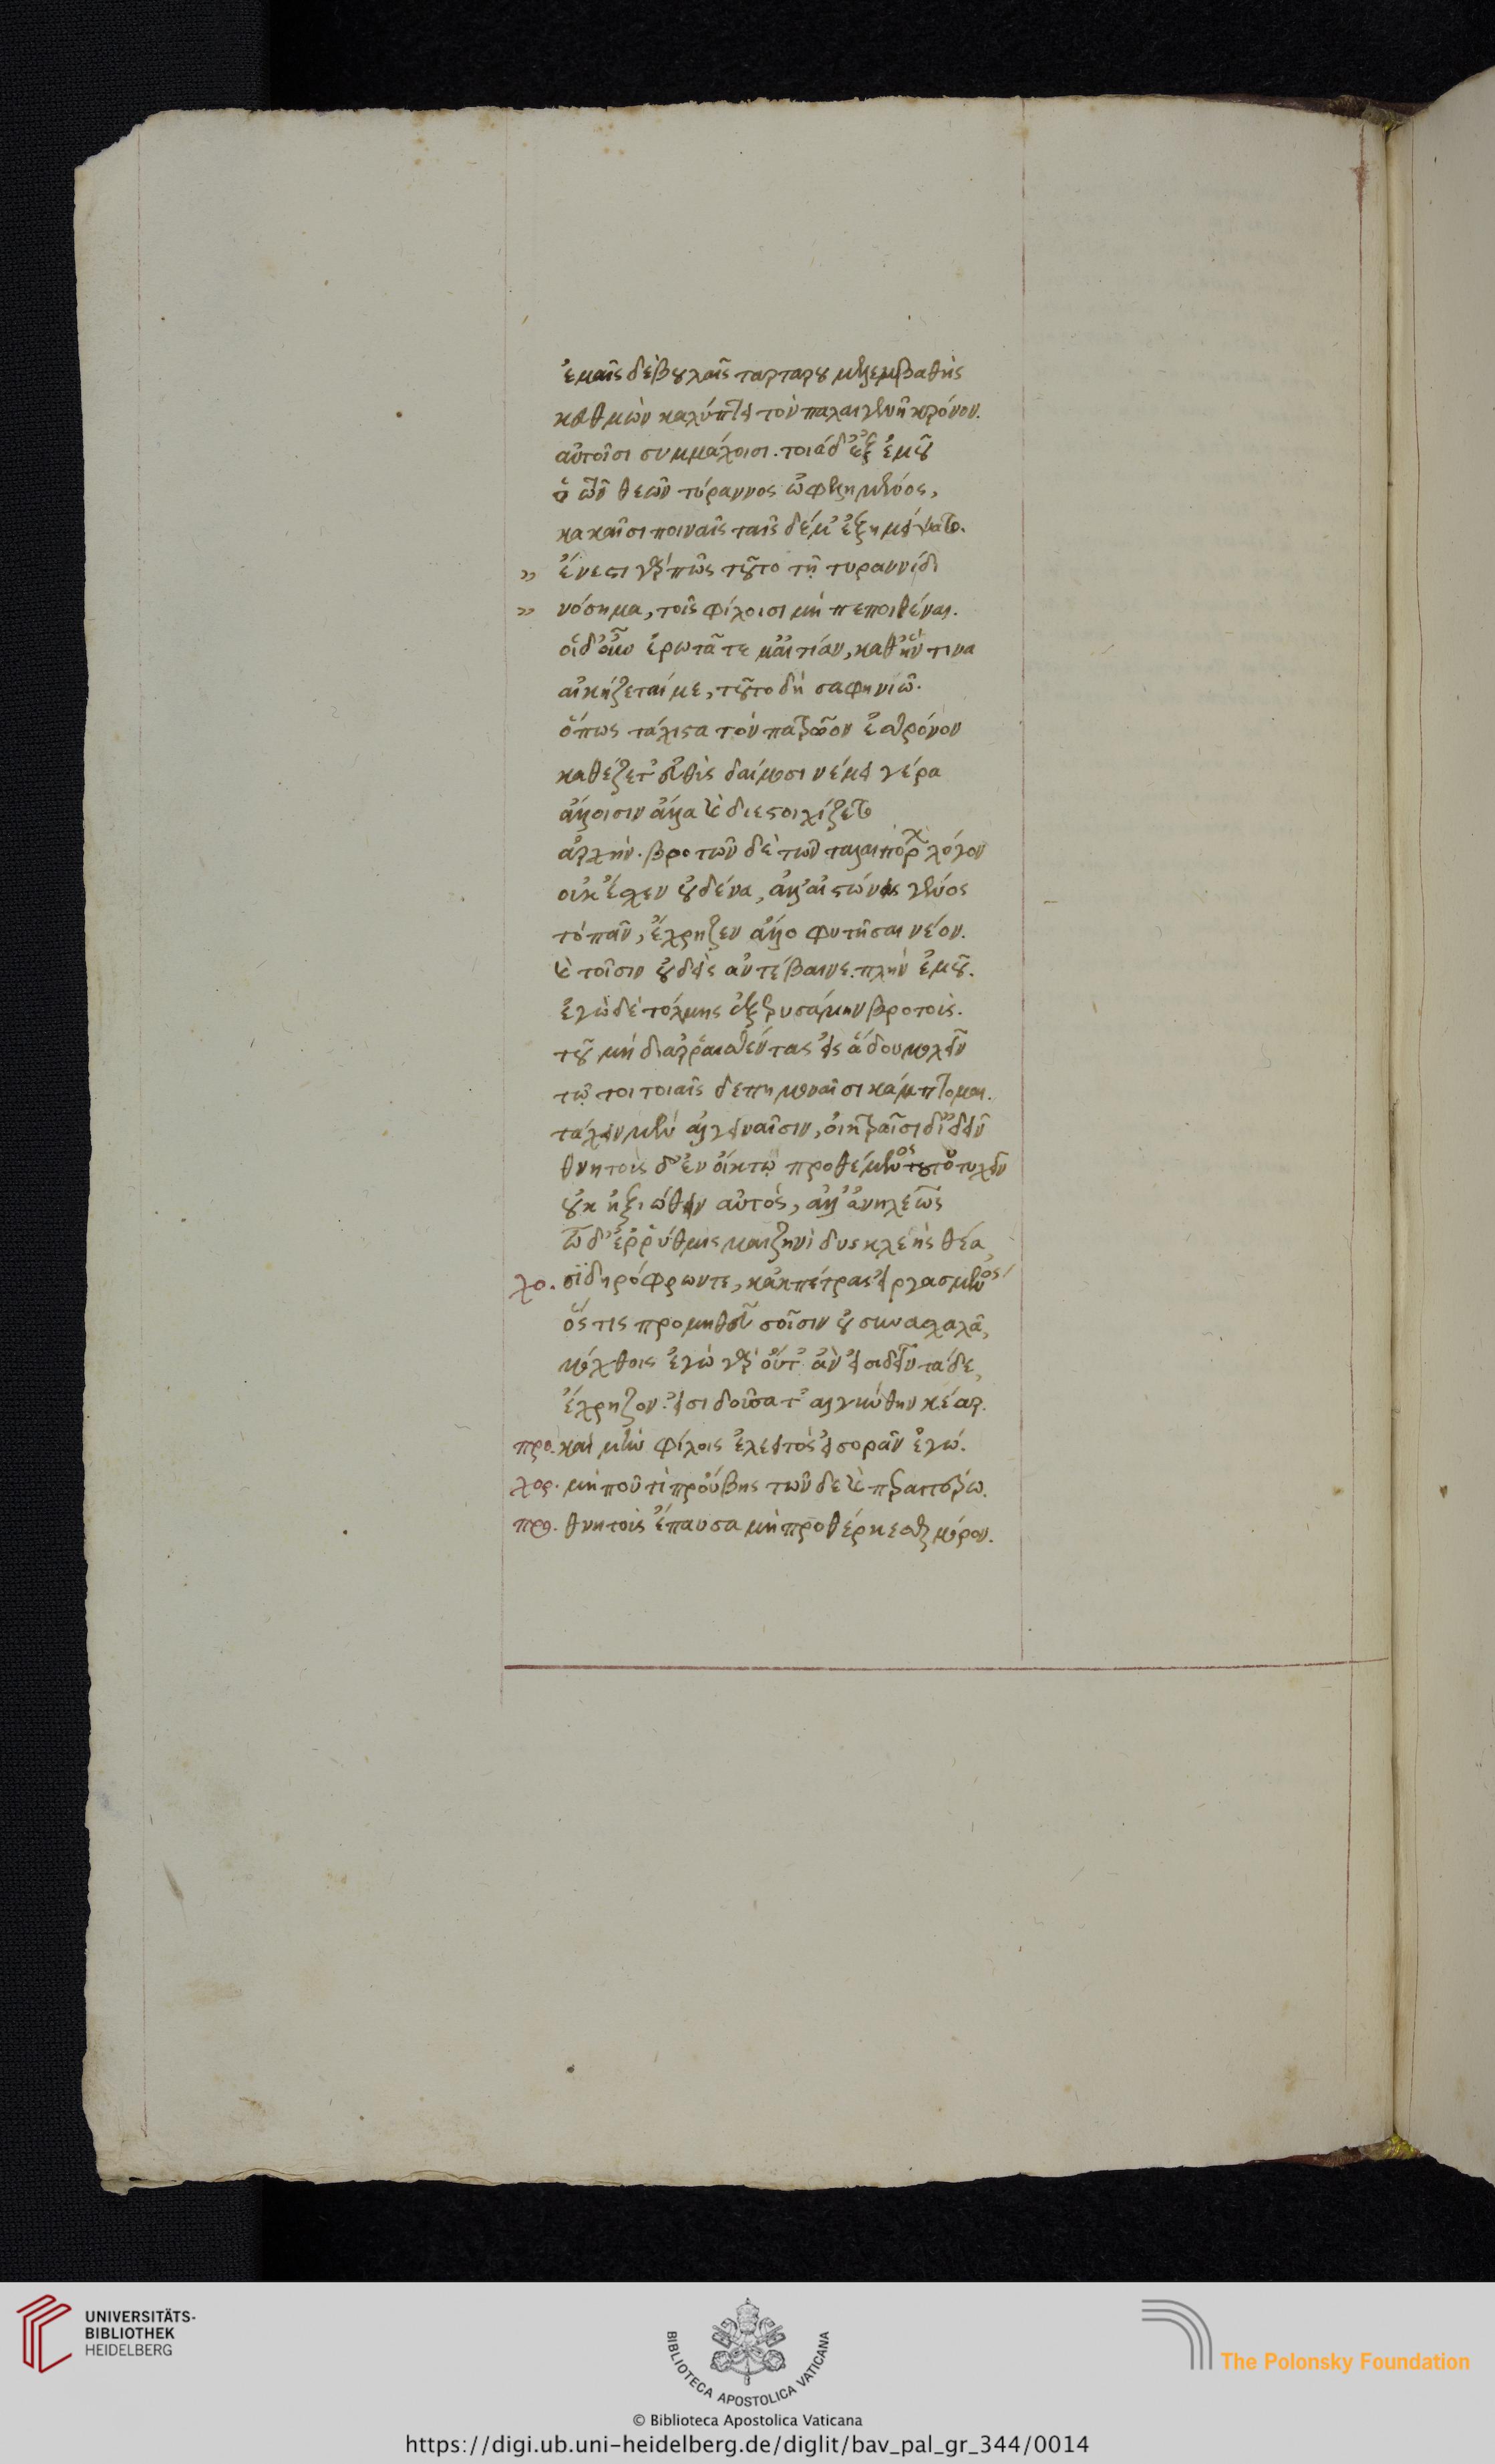 ἐμαῖς δὲ βουλαῖς ταρταρου μελλεμβαθὴς
κευθμὼν καλύπτει τὸν παλαιγενῆ κρόνον.
αὐτοῖσι συμμάχοισι. τοιάδ' ἐξ ἐμοῦ
ὁ τῶν θεῶν τύραννος ὠφελημένος,
κακαῖσι ποιναῖς ταῖς δέ μ' ἐξημείψατο.
» ἔνεστι γάρ πως τοῦτο τῇ τυραννίδι
» νόσημα, τοῖς φίλοισι μὴ πεποιθέναι.
οἱ δ' οὖν ἐρωτᾶτε μ' αἰτίαν, καθ' ἥν τινα
αἰκίζεταί με, τοῦτο δὴ σαφηνιῶ.
ὅπως τάχιστα τὸν πατρῷον ἐς θρόνον
καθέζετ' εὐθὺς δαίμοσι νέμει γέρα
ἄλλοισιν ἄλλα καὶ διεστοιχίζετο
ἀρχήν. βροτῶν δὲ τῶν ταλαιπώρων λόγον
οὐκ ἔσχεν οὐδένα, ἀλλ' ἀϊστώσας γένος
τὸ πᾶν, ἔχρηζεν ἄλλο φυτῆσαι νέον.
καὶ τοῖσιν οὐδεὶς ἀντέβαινε. πλὴν ἐμοῦ.
ἐγὼ δὲ τόλμης ἐξερυσάμην βροτοὺς.
τοῦ μὴ διαῤῥαισθέντας εἰς ἅδου μολεῖν
τῷ τοι τοιαῖς δε πημοναῖσι κάμπτομαι.
πάσχειν μὲν ἀλγειναῖσιν, οἰκτραῖσι δ' ἰδεῖν
θνητοὺς δ' ἐν οἴκτῳ προθέμενος τούτου τυχεῖν
οὐκ ἠξιώθην αὐτός, ἀλλ' ἀνηλεῶς
ὧδ' ἐῤῥύθμισμαι ζηνὶ δυσκλεὴς θέα,
χο. σιδηρόφρων τε, κἀκ πέτρας εἰργασμένος
ὅς τις προμηθεῦ σοῖσιν οὐ συνασχαλᾷ,
μόχθοις ἐγὼ γὰρ οὔτ' ἂν εἰσιδεῖν τάδε,
ἔχρηζον. εἰσιδοῦσα τ' ἀλγύνθην κέαρ.
προ. καὶ μὴν φίλοις ἐλεεινὸς εἰσορᾶν ἐγώ.
χορ. μή που τὶ προὔβης τῶν δε καὶ περαιτέρω.
προ. θνητοὺς ἔπαυσα μὴ προδέρκεσθαι μόρον.
UNIVERSITÄTS-
BIBLIOTHEK
HEIDELBERG
BIBLIOTECA APOSTOLICA VATICANA
The Polonsky Foundation
© Biblioteca Apostolica Vaticana
https://digi.ub.uni-heidelberg.de/diglit/bav_pal_gr_344/0014